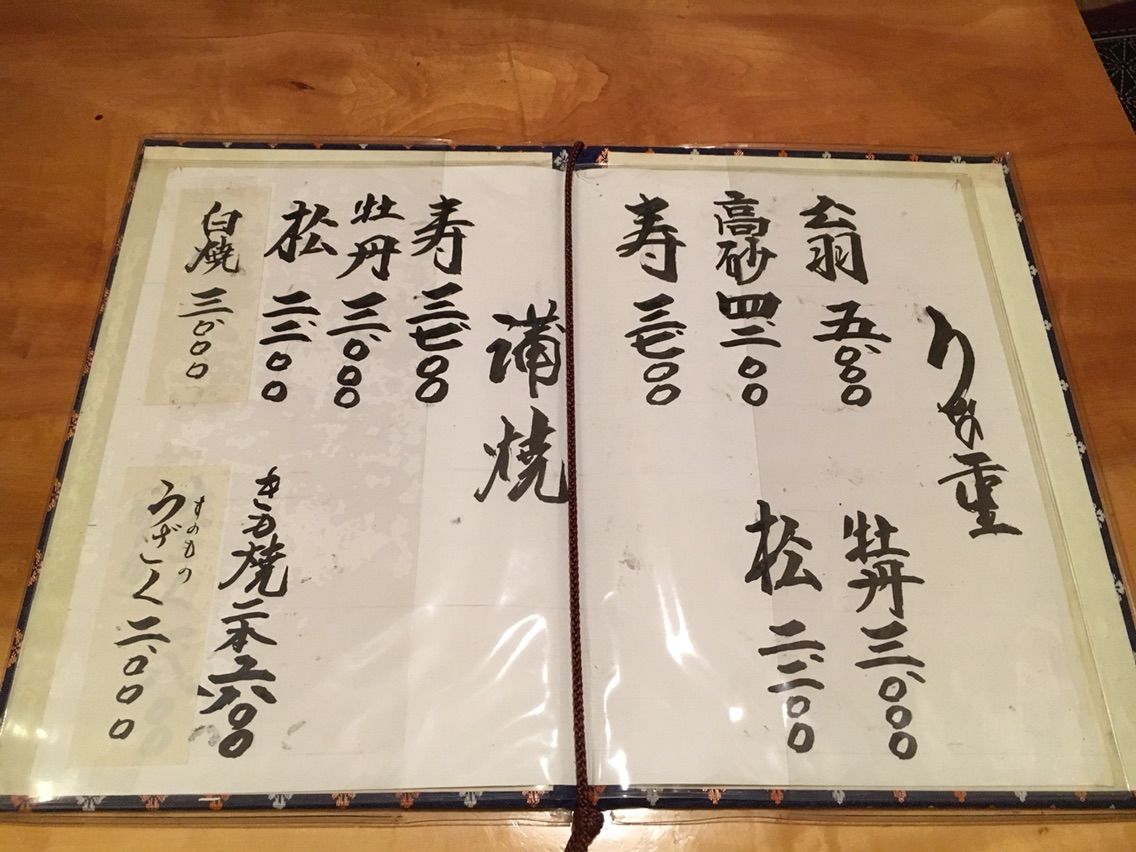 うな重
翁 五、〇〇〇
高砂 四、二〇〇
寿 三、七〇〇
牡丹 三、〇〇〇
松 二、二〇〇
蒲焼
寿 三、七〇〇
牡丹 三、〇〇〇
松 二、二〇〇
白焼 三、〇〇〇
きも焼 二本
すのもの
うざく 二、〇〇〇